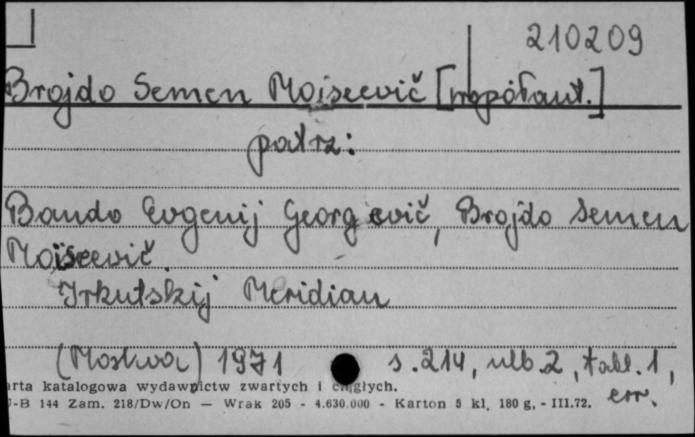 210209
Brojdo Semen Moiseevič [współaut.]
patrz:
Bando Evgenij Georgievič, Brojdo Semen
Moiseevič
Irkutskij Meridian
(Moskva) 1971 s. 214, nlb. 2, tabl. 1,
err.
arta katalogowa wydawnictw zwartych i ciągłych.
J-B 144 Zam. 218/Dw/On — Wrak 205 - 4.630.000 - Karton 5 kl. 180 g, - III.72.